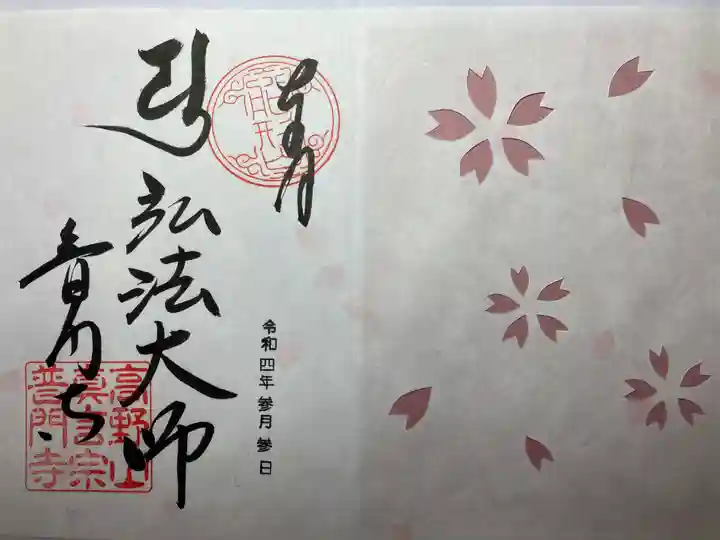 奉拝
令和四年参月参日
弘法大師
普門寺
高野山
真言宗
普門寺